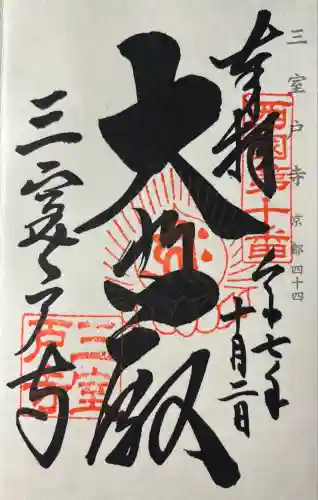 三室戸寺 京都四十四
奉拝
西国第十番
令和七年
十月二日
大悲殿
三室戸寺
三室
戸寺